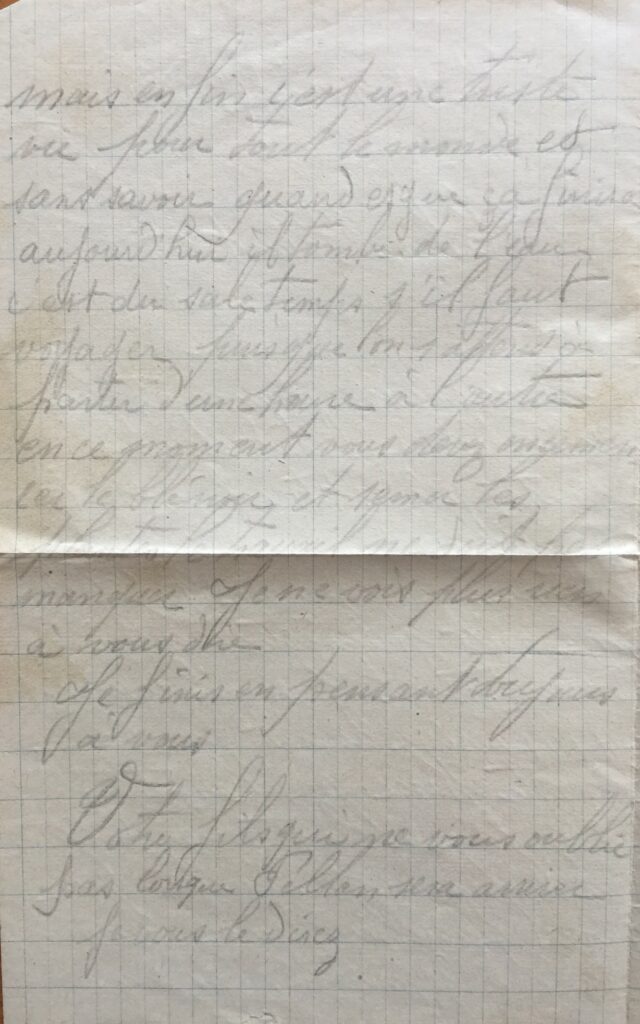 mais enfin c'est une triste
vie pour tout le monde et
sans savoir quand esque ça finira
aujourd'hui il tombe de l'eau
c'est du sale temps s'il faut
voyager puisque l'on s'attend à
partir d'une heure à l'autre
en ce moment vous devez
le blé noir et semer les
le travail ne doit pas
manquer Je ne vois plus rien
à vous dire
Je finis en pensant toujours
à vous
Votre fils qui ne vous oublie
pas lorsque sera arrivé
je vous le direz